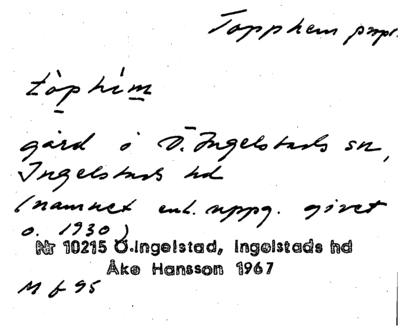 Topphem prpr.
tòphém
gård i Ö. Ingelstads sn,
Ingelstads hd
(namnet enl. uppg. givet
o. 1930)
Nr 10215 Ö.Ingelstad, Ingelstads hd
Åke Hansson 1967
M f 95